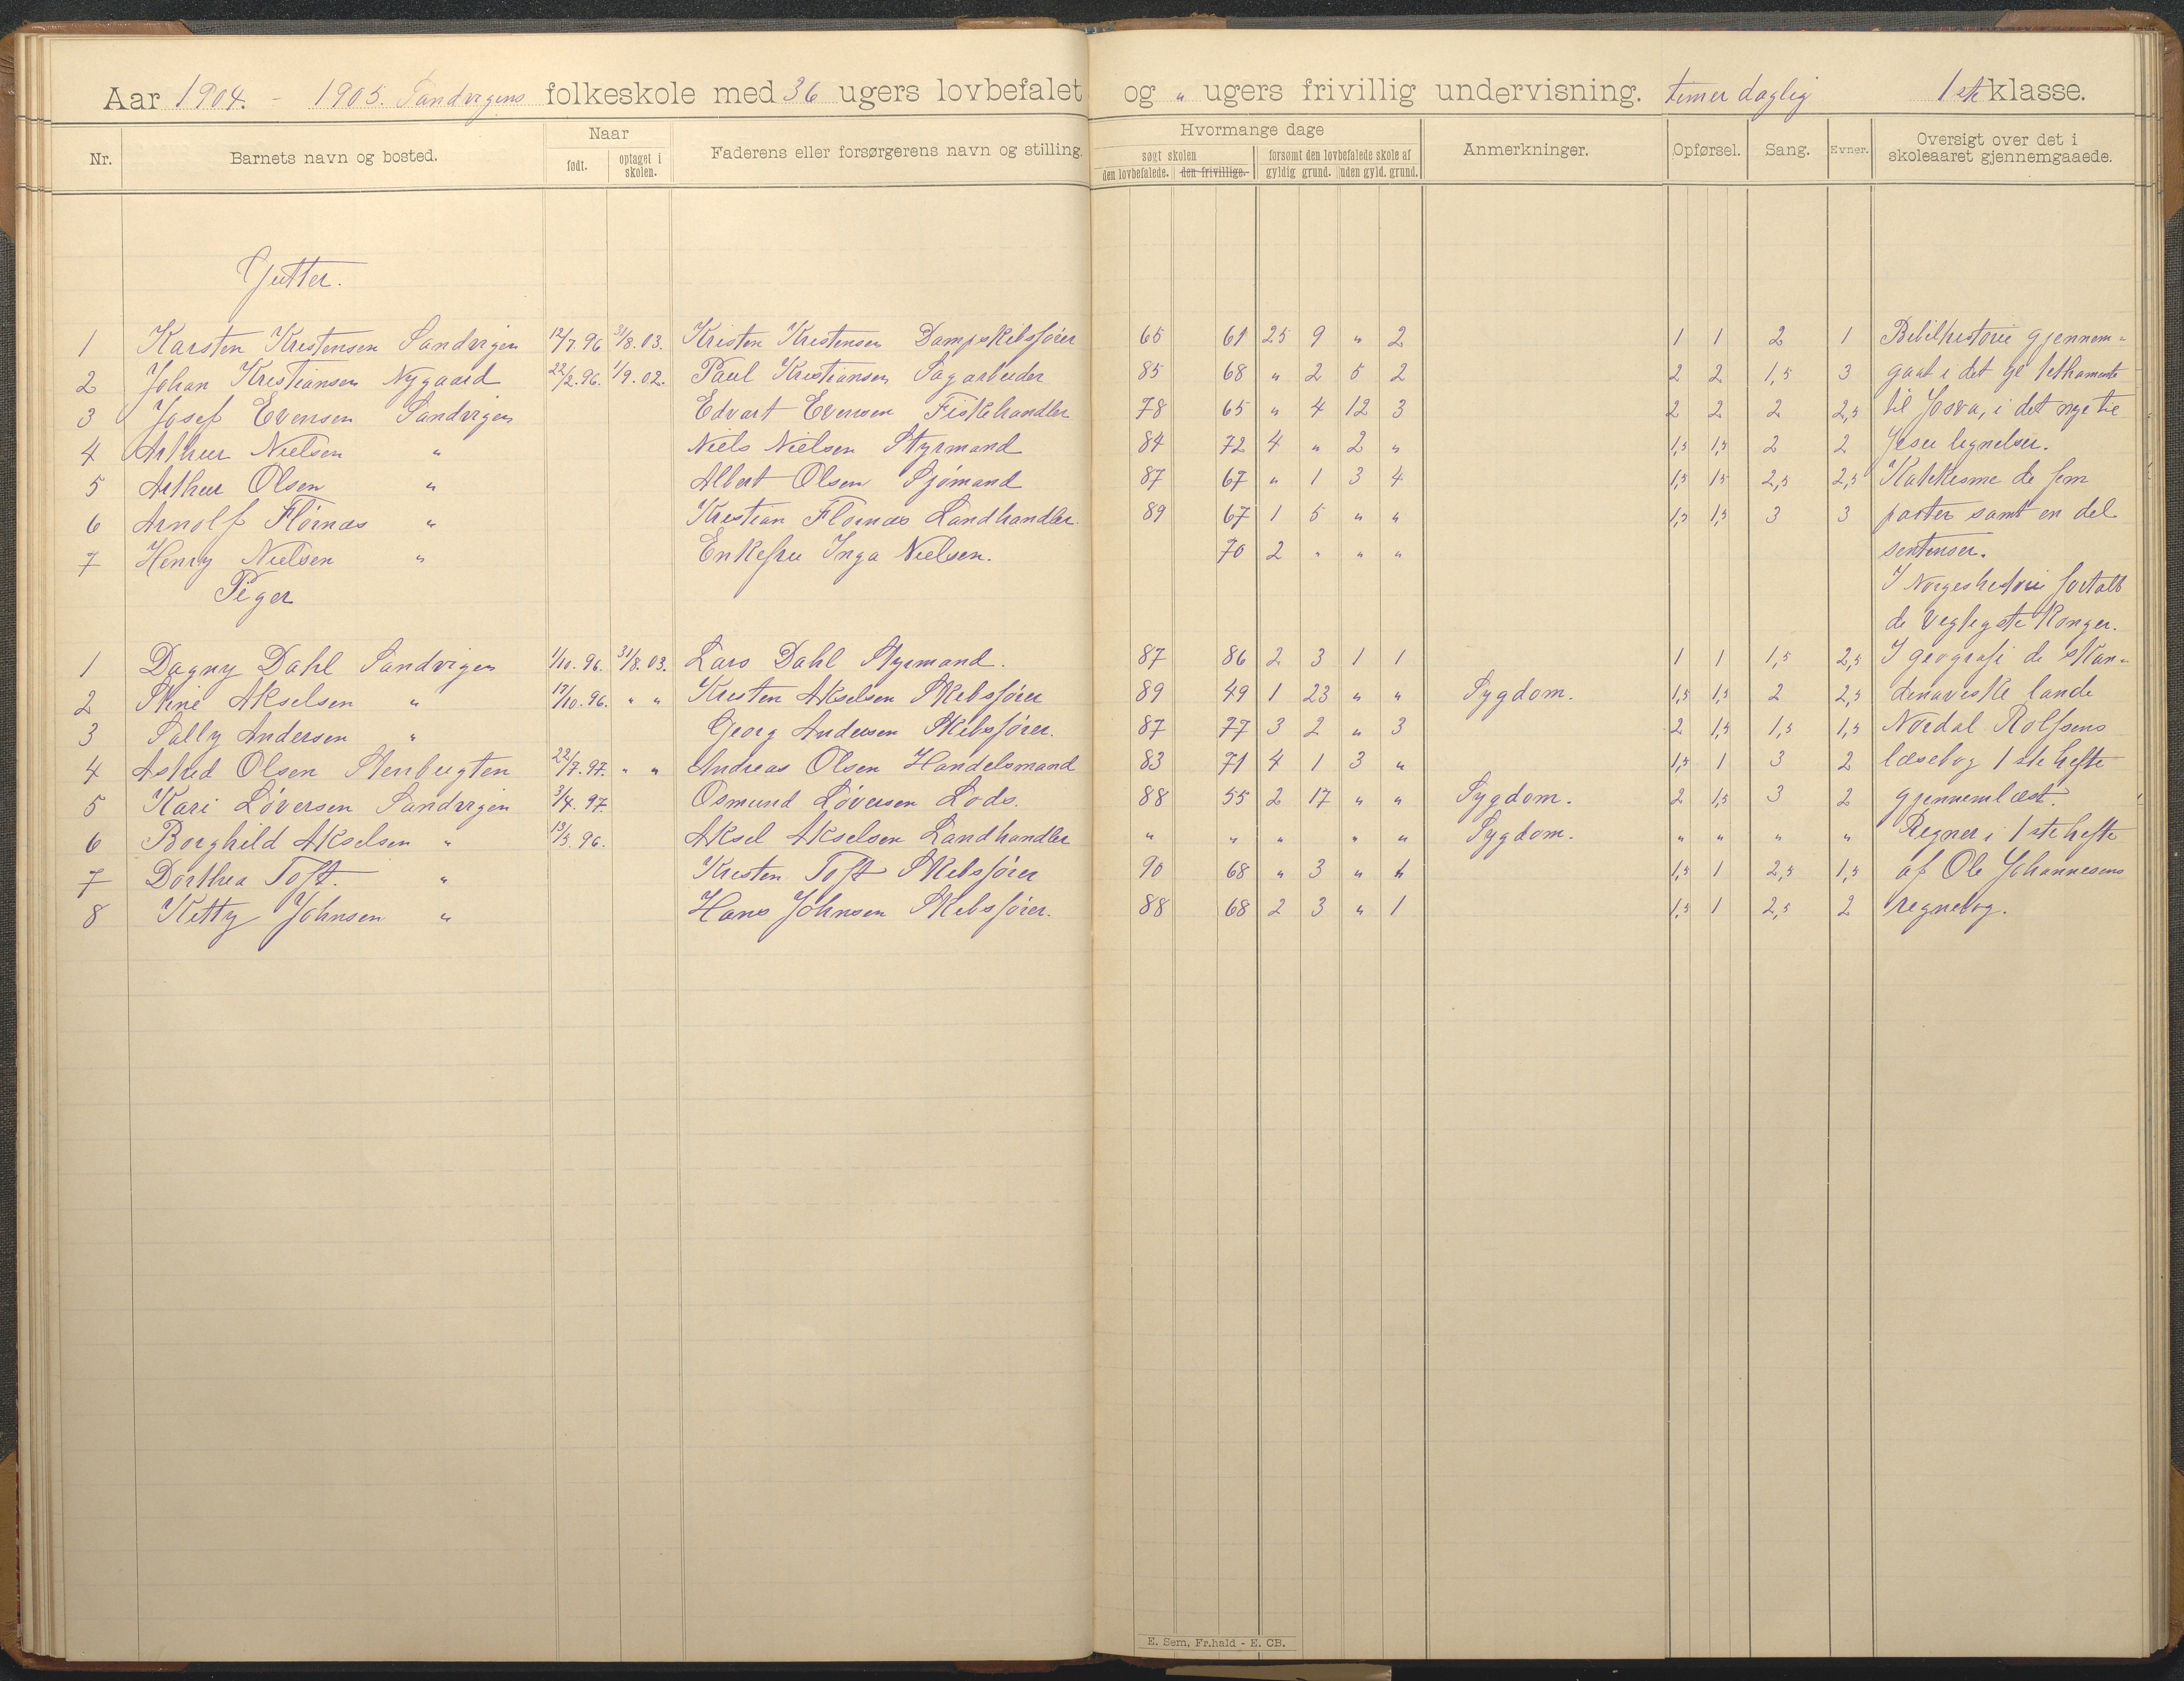 Aar 1904. - 1905. Sandvigens folkeskole med 36 ugers lovbefalet og " ugers frivillig undervisning. timer daglig 1ste klasse.
Nr. Barnets navn og bosted. Naar født. optaget i skolen. Faderens eller forsørgerens navn og stilling. Hvormange dage søgt skolen den lovbefalede. den frivillige. forsømt den lovbefalede skole af gyldig grund. uden gyld. grund. Anmerkninger. Opførsel. Sang. Evner. Oversigt over det i skoleaaret gjennemgaaede.
Gutter.
1 Karsten Kristensen Sandvigen 12/7.96 31/8.03. Kristen Kristensen Dampskibsfører 65 61 25 9 " 2 1 1 2 1 Bibilhistorie gjennem-
2 Johan Kristiansen Nygaard 22/2.96. 1/9.02. Paul Kristiansen Sagarbeider 85 68 " 2 5 2 2 2 1,5 3 gaat i det gl. testhamente
3 Josef Evensen Sandvigen Edvart Evensen Fiskehandler 78 65 " 4 12 3 2 2 2 2,5 til Josva, i det nye til
4 Arthur Nielsen " Niels Nielsen Styrmand 84 72 4 " 2 " 1,5 1,5 2 2 Jesu lignelser.
5 Arthur Olsen " Albert Olsen Sjømand 87 67 " 1 3 4 1,5 15 2,5 2,5 Katekisme de fem
6 Arnolf Flørnæs " Kristian Flørnæs Landhandler. 89 67 1 5 " " 1,5 1,5 3 3 parter samt en del
7 Henry Nielsen " Enkefru Inga Nielsen. 70 2 " " " sentenser.
Piger
I Norgeshistorie fortalt
de vegtigste Konger.
1 Dagny Dahl Sandvigen 1/10.96. 31/8.03. Lars Dahl Styrmand. 87 86 2 3 1 1 1 1 1,5 2,5 I geografi de skan-
2 Stine Akselsen " 17/10.96. " " Kristen Akselsen Skibsfører 89 49 1 23 " " Sygdom. 1,5 1,5 2 2,5 dinaviske lande
3 Sally Andersen " Georg Andersen Skibsfører. 87 77 3 2 " 3 2 1,5 1,5 1,5 Nordal Rolfsens
4 Astrid Olsen Stenbugten 22/7.97. " " Andreas Olsen Handelsmand 83 71 4 1 3 " 1,5 1 3 2 læsebog 1ste hefte
5 Kari Løversen Sandvigen 3/4.97 Osmund Løversen Lods. 88 55 2 17 " " Sygdom. 2 1,5 3 2 gjennemlæst.
6 Borghild Akselsen " 13/3.96. Aksel Akselsen Landhandler " " " " " Sygdom. " " " " Regner i 1ste hefte
7 Dorthea Toft. " Kristen Toft Skibsfører 90 68 " 3 " 1,5 1 2,5 1,5 af Ole Johannesens
8 Kitty Johnsen " Hans Johnsen Skibsfører. 88 68 2 3 " 1 1,5 1 2,5 2 regnebog.
E. Sem, Fr.hald - E. CB.